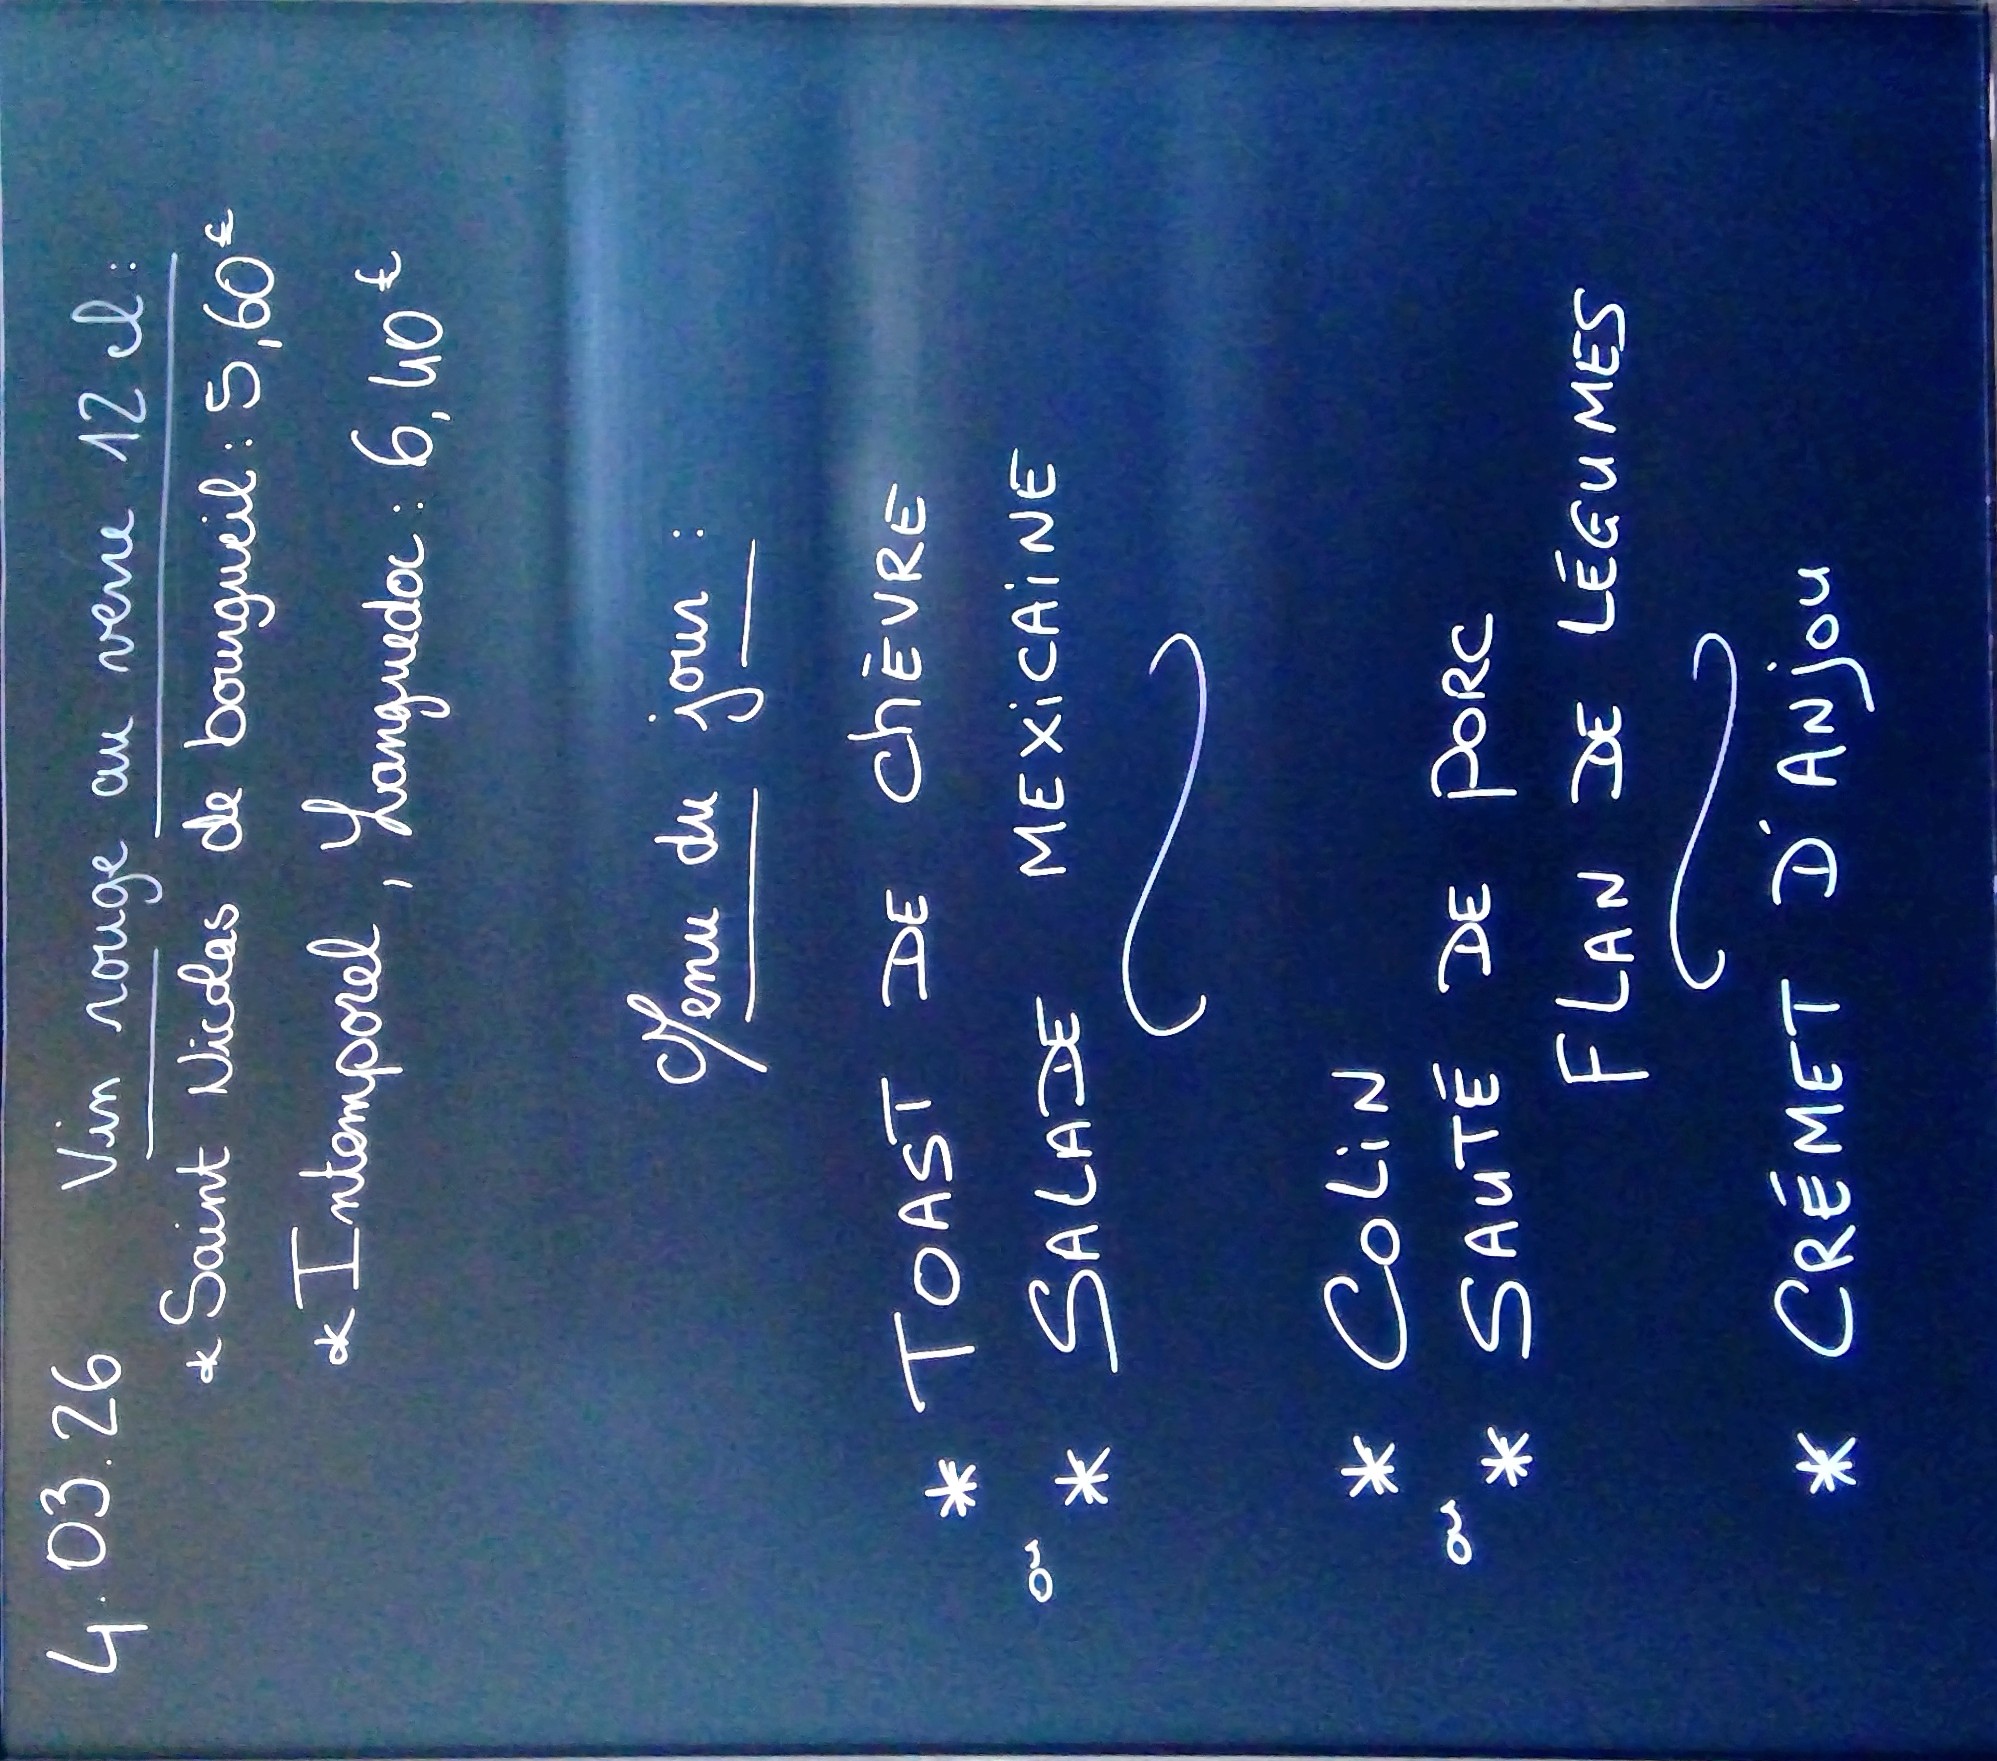 4.03.26 Vin rouge au verre 12 cl :
* Saint Nicolas de bourgueil : 5,60 €
* Intemporel, Languedoc : 6,40 €
Menu du jour :
* TOAST DE ChÈVRE
ou
* SALADE MEXiCAiNE
* COLiN
ou
* SAUTÉ DE PORC
FLAN DE LÉGUMES
* CRÉMET D'ANjou